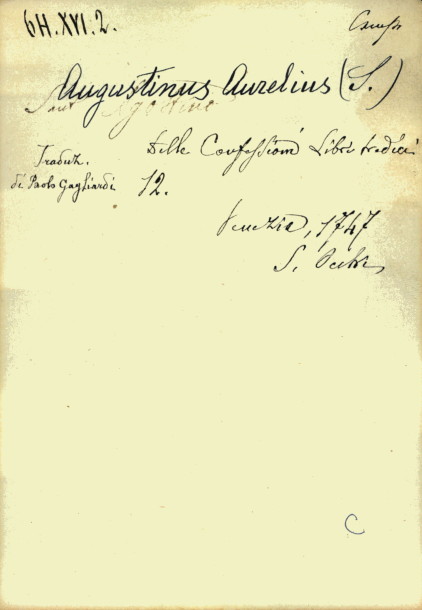 6H.XVI.2.
Augustinus Aurelius (S.)
Sant' Agostino
Delle Confessioni Libri tredici
Traduz.
di Paolo Gagliardi
12.
Venezia, 1747
S.
C